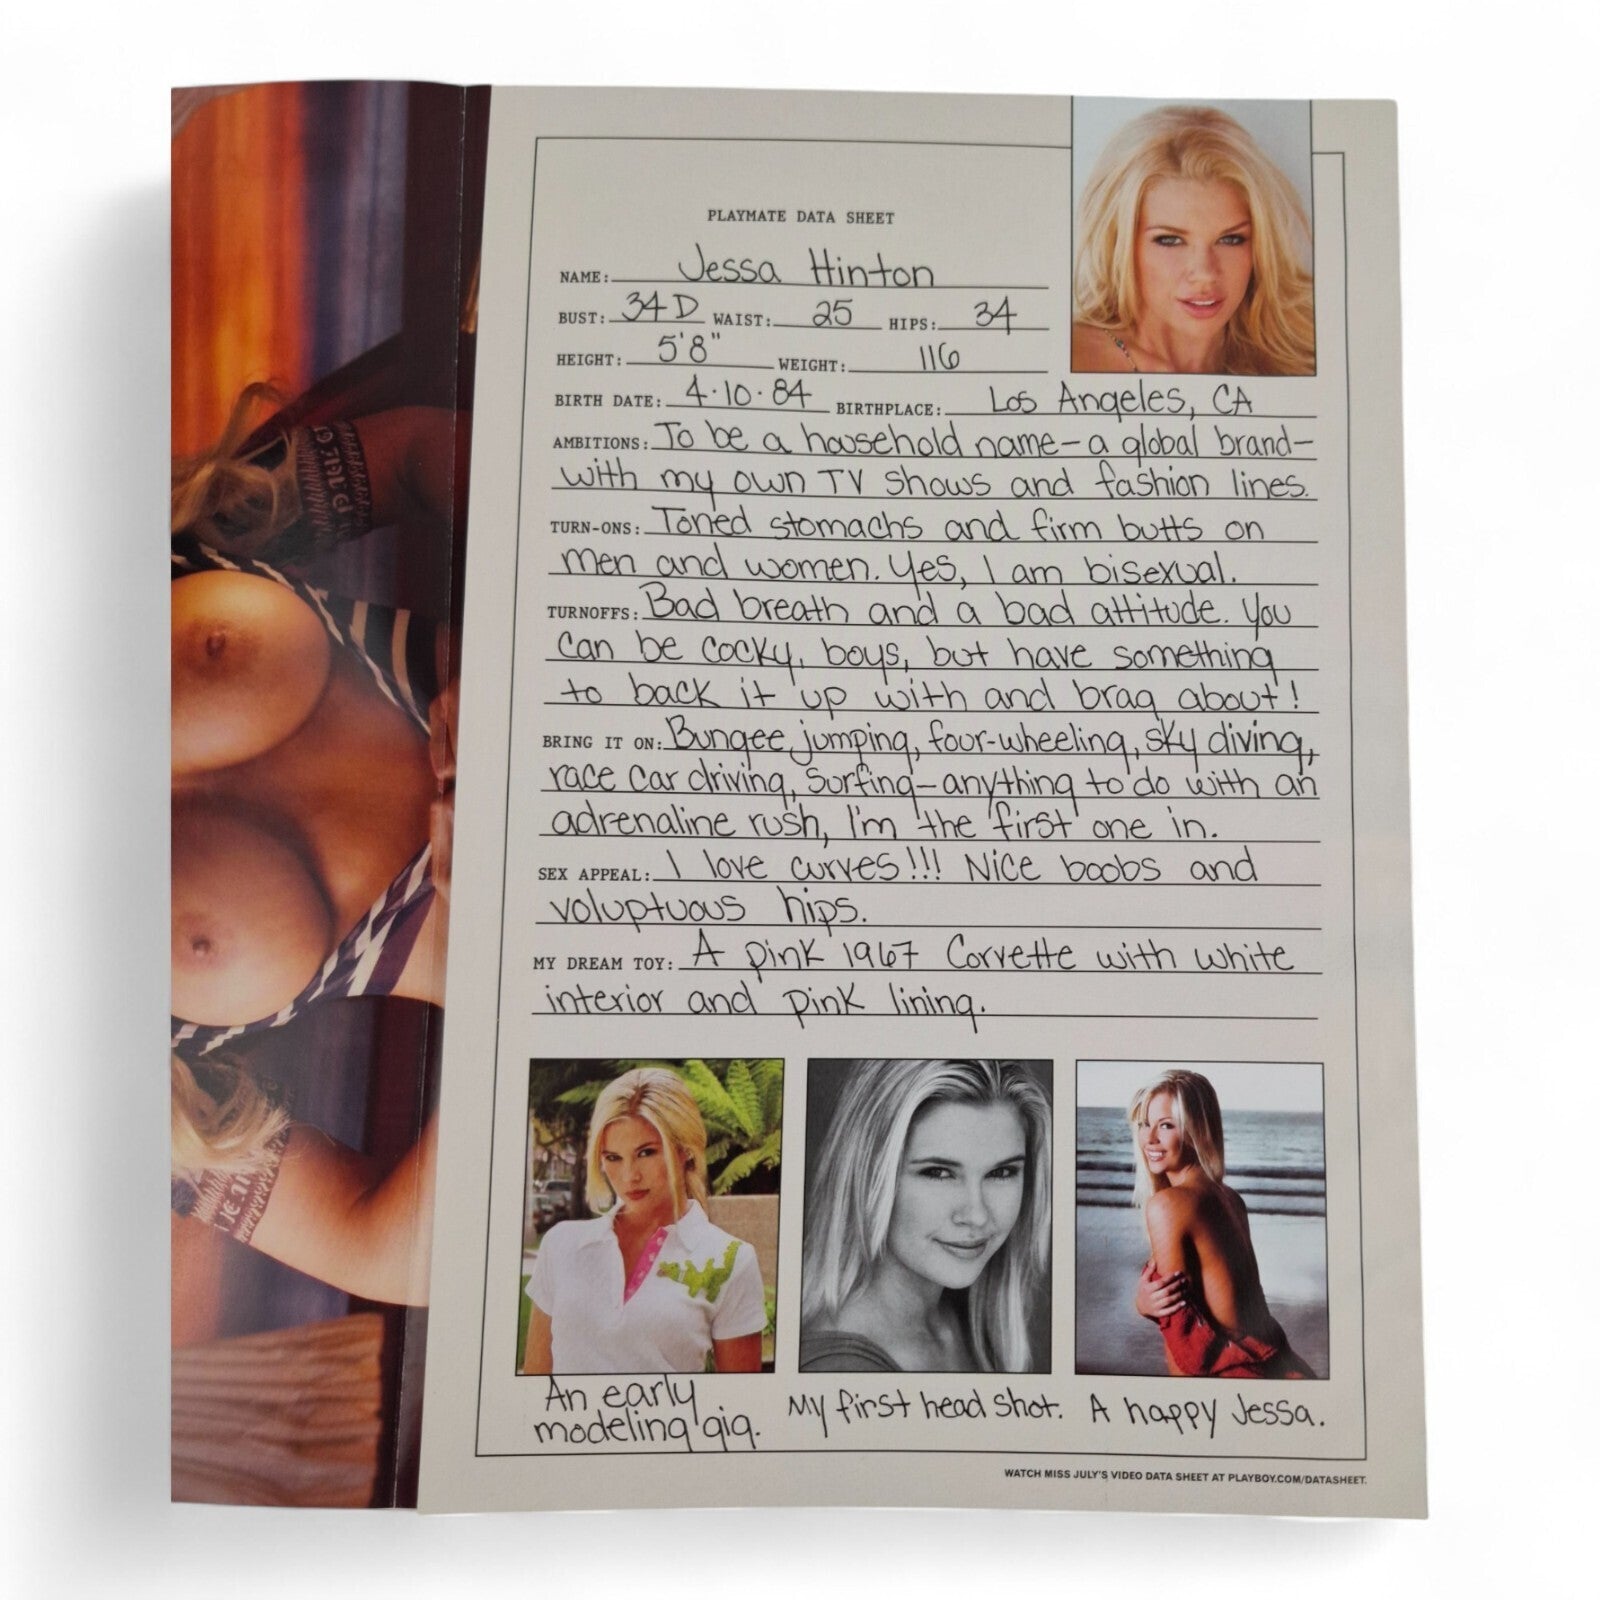 PLAYMATE DATA SHEET
NAME: Jessa Hinton
BUST: 34D WAIST: 25 HIPS: 34
HEIGHT: 5'8" WEIGHT: 116
BIRTH DATE: 4·10·84 BIRTHPLACE: Los Angeles, CA
AMBITIONS: To be a household name—a global brand—
with my own TV shows and fashion lines.
TURN-ONS: Toned stomachs and firm butts on
men and women. Yes, I am bisexual.
TURNOFFS: Bad breath and a bad attitude. You
can be cocky, boys, but have something
to back it up with and brag about!
BRING IT ON: Bungee jumping, four-wheeling, sky diving,
race car driving, surfing—anything to do with an
adrenaline rush, I'm the first one in.
SEX APPEAL: I love curves!!! Nice boobs and
voluptuous hips.
MY DREAM TOY: A pink 1967 Corvette with white
interior and pink lining.
An early
modeling gig.
My first head shot.
A happy Jessa.
WATCH MISS JULY'S VIDEO DATA SHEET AT PLAYBOY.COM/DATASHEET.